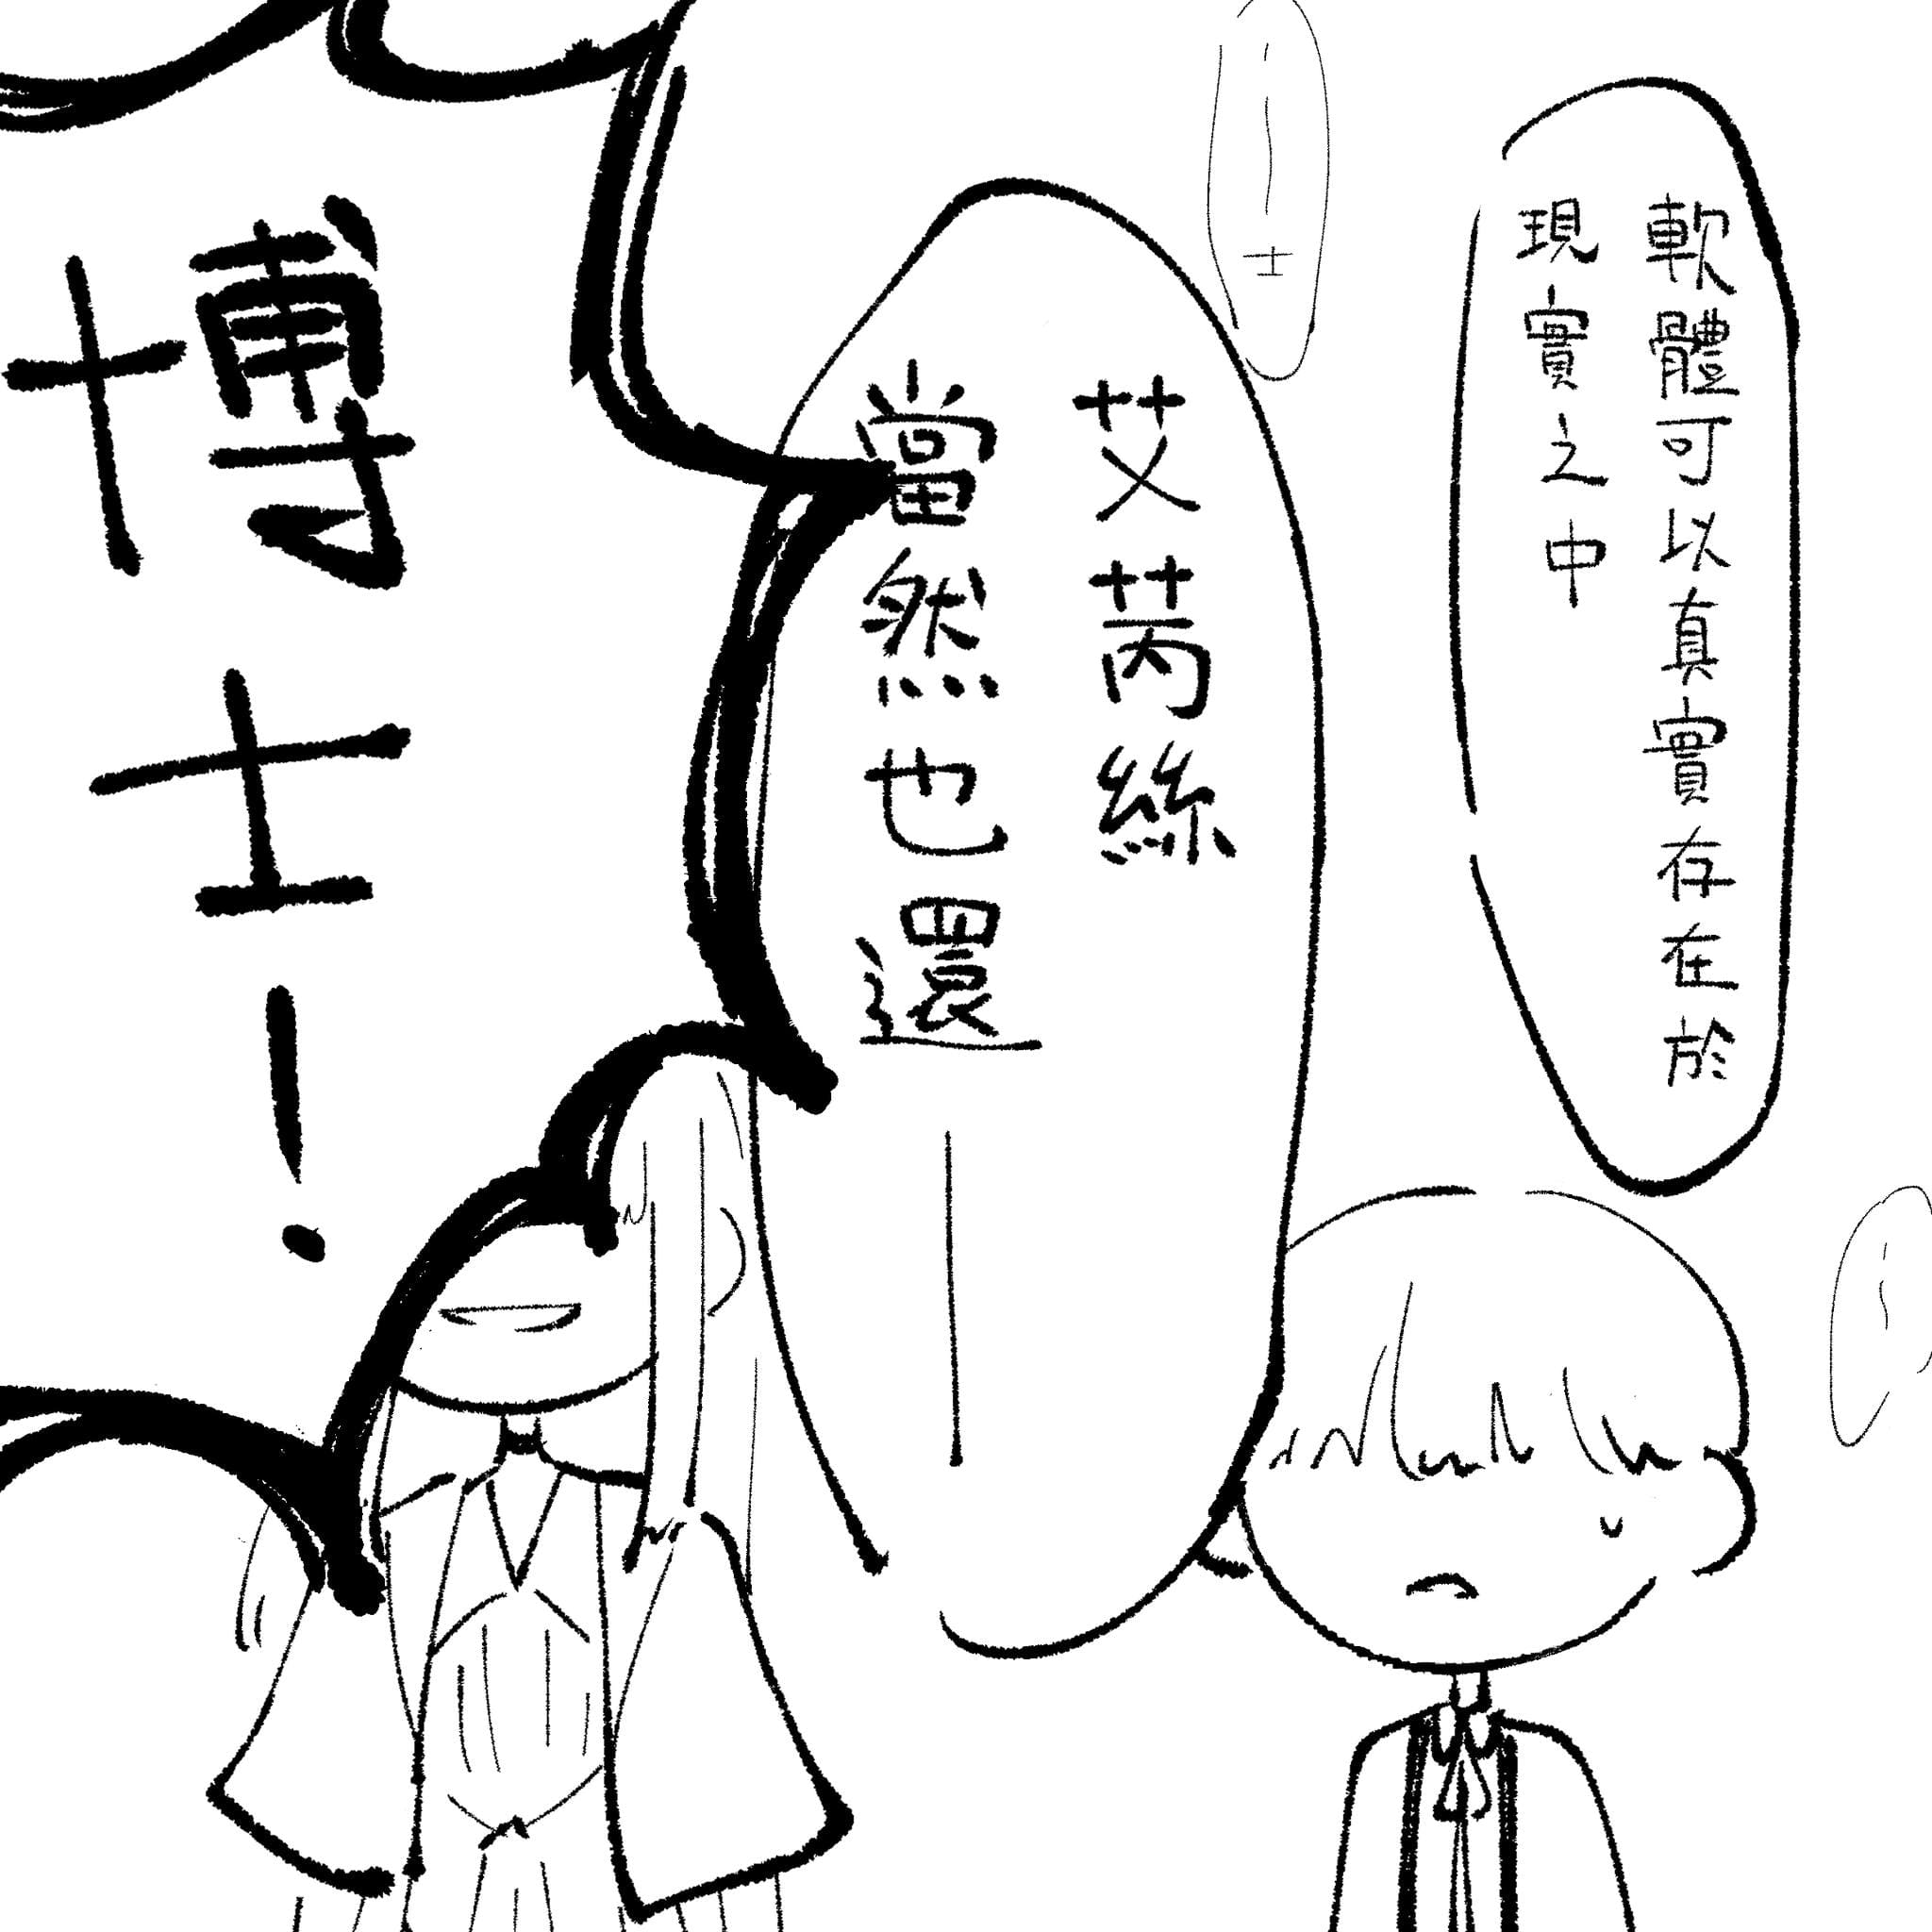 軟體可以真實存在於
現實之中
士
艾芮絲
當然也還—
博士！